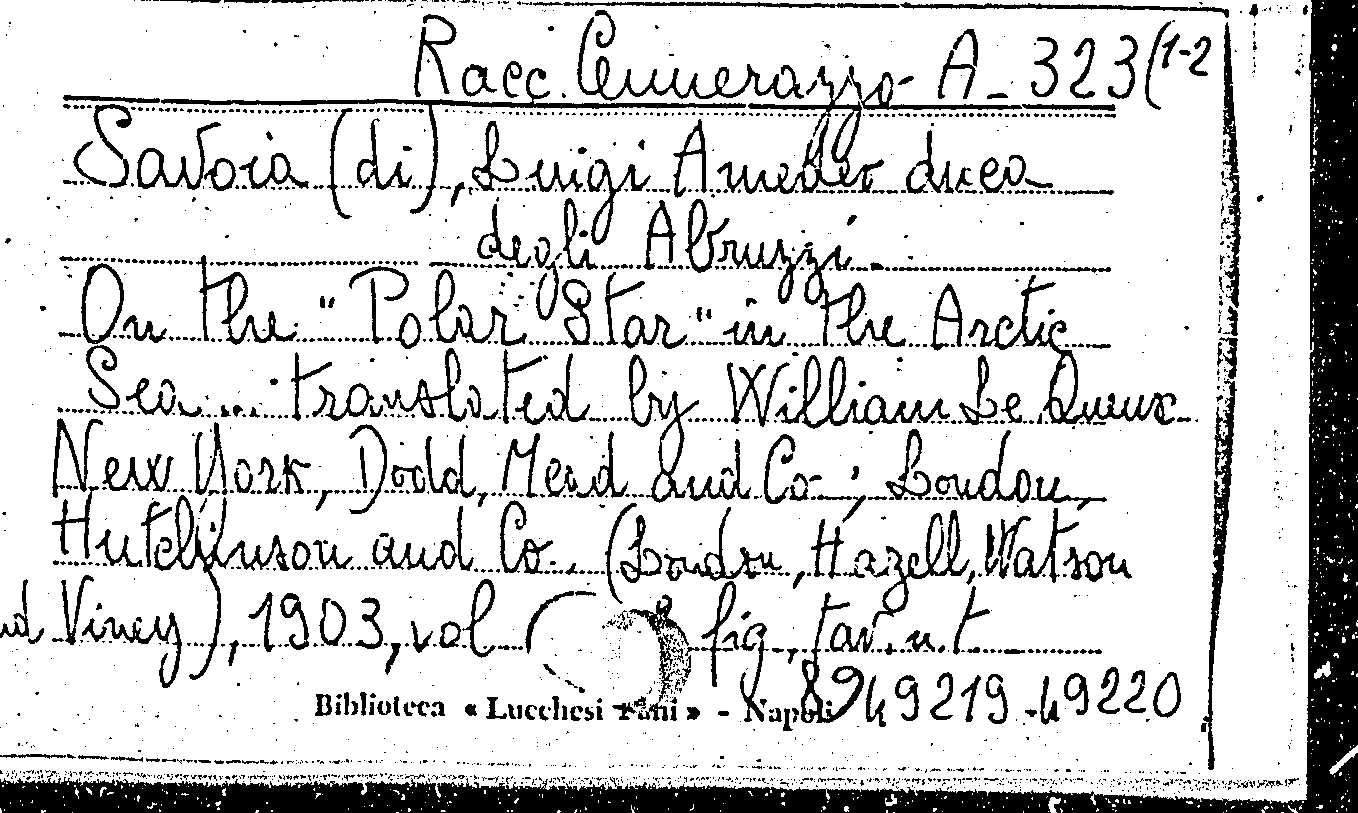 Racc. Cennerazzo - A - 323(1-2
Savoia (di), Luigi Amedeo duca
degli Abruzzi.
On the "Polar Star" in the Arctic
Sea ... translated by William Le Queux
New York, Dodd, Mead and Co.; London,
Hutchinson and Co. (London, Hazell, Watson
nd Viney), 1903, vol fig., tav. n.t.
Biblioteca « Lucchesi Palli » - Napoli
49219-49220